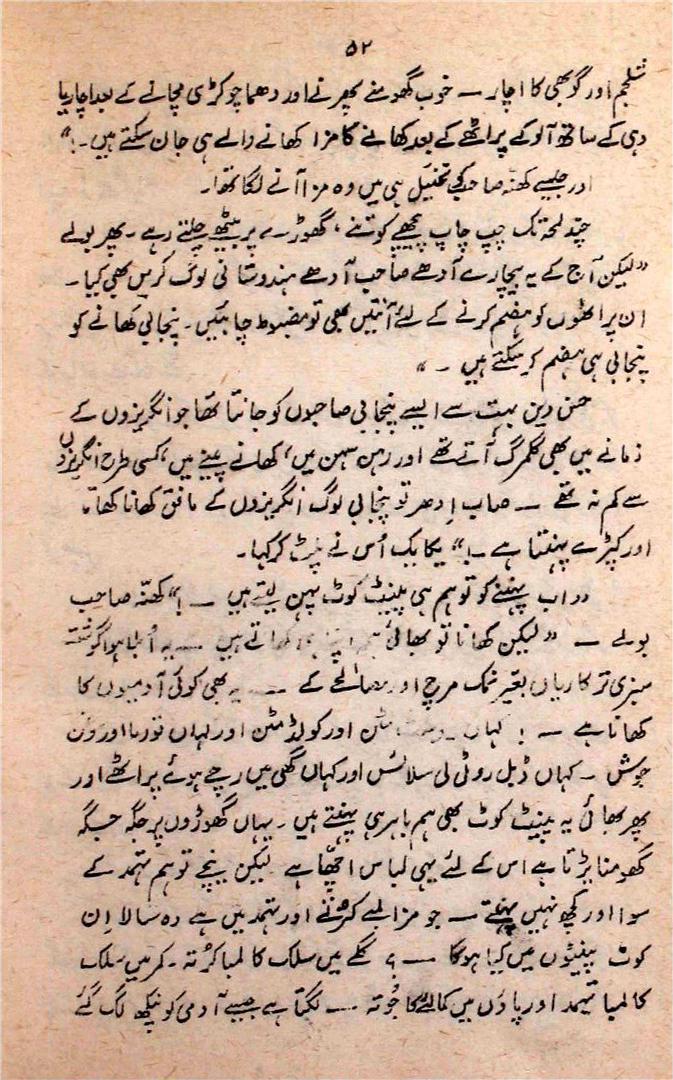 ۵۲
شلجم اور گوبھی کا اچار — خوب گھومنے پھرنے اور دھما چوکڑی مچانے کے بعد اچار یا
دہی کے ساتھ آلو کے پراٹھے کے بعد کھانے کا مزا کھانے والے ہی جان سکتے ہیں۔!"
اور جیسے کھنّہ صاحب کی تخئیل ہی میں وہ مزا آنے لگا تھا۔
چند لمحہ تک چپ چاپ پیچھے کو تنے، گھوڑے پر بیٹھے چلتے رہے۔ پھر بولے
"لیکن آج کے یہ بیچارے آدھے صاحب آدھے ہندوستانی لوگ کریں بھی کیا۔
ان پراٹھوں کو ہضم کرنے کے لئے آنتیں بھی تو مضبوط چاہئیں۔ پنجابی کھانے کو
پنجابی ہی ہضم کر سکتے ہیں ۔"
حسن دین بہت سے ایسے پنجابی صاحبوں کو جانتا تھا جو انگریزوں کے
زمانے میں بھی گلمرگ آتے تھے اور رہن سہن میں، کھانے پینے میں، کسی طرح انگریزوں
سے کم نہ تھے — صاب اِدھر تو پنجابی لوگ انگریزوں کے مافق کھانا کھاتا
اور کپڑے پہنتا ہے —!" یکایک اُس نے پلٹ کر کہا۔
"اب پہننے کو تو ہم ہی پینٹ کوٹ پہن لیتے ہیں —!" کھنّہ صاحب
بولے — "لیکن کھانا تو بھائی ہم اپنا ہی کھاتے ہیں — یہ اُبلا ہوا گوشت
سبزی ترکاریاں بغیر نمک مرچ اور مصالحے کے — یہ بھی کوئی آدمیوں کا
کھانا ہے —! کہاں مٹن اور کولڈ مٹن اور کہاں قورما اور روغن
جوش۔ کہاں ڈبل روٹی کی سلائس اور کہاں گھی میں رچے ہوئے پراٹھے اور
پھر بھائی یہ پینٹ کوٹ بھی ہم باہر ہی پہنتے ہیں۔ یہاں گھوڑوں پر جگہ جگہ
گھومنا پڑتا ہے اس کے لئے یہی لباس اچھّا ہے لیکن نیچے تو ہم تہمد کے
سوا اور کچھ نہیں پہنتے — جو مزا لمبے کُرتے اور تہمد میں ہے وہ سالا اِن
کوٹ پینٹوں میں کیا ہوگا —؟ گلے میں سلک کا لمبا کُرتہ۔ کمر میں سلک
کا لمبا تہمد اور پاؤں میں کا جُوتہ — لگتا ہے جیسے آدمی کو پنکھ لگ گئے